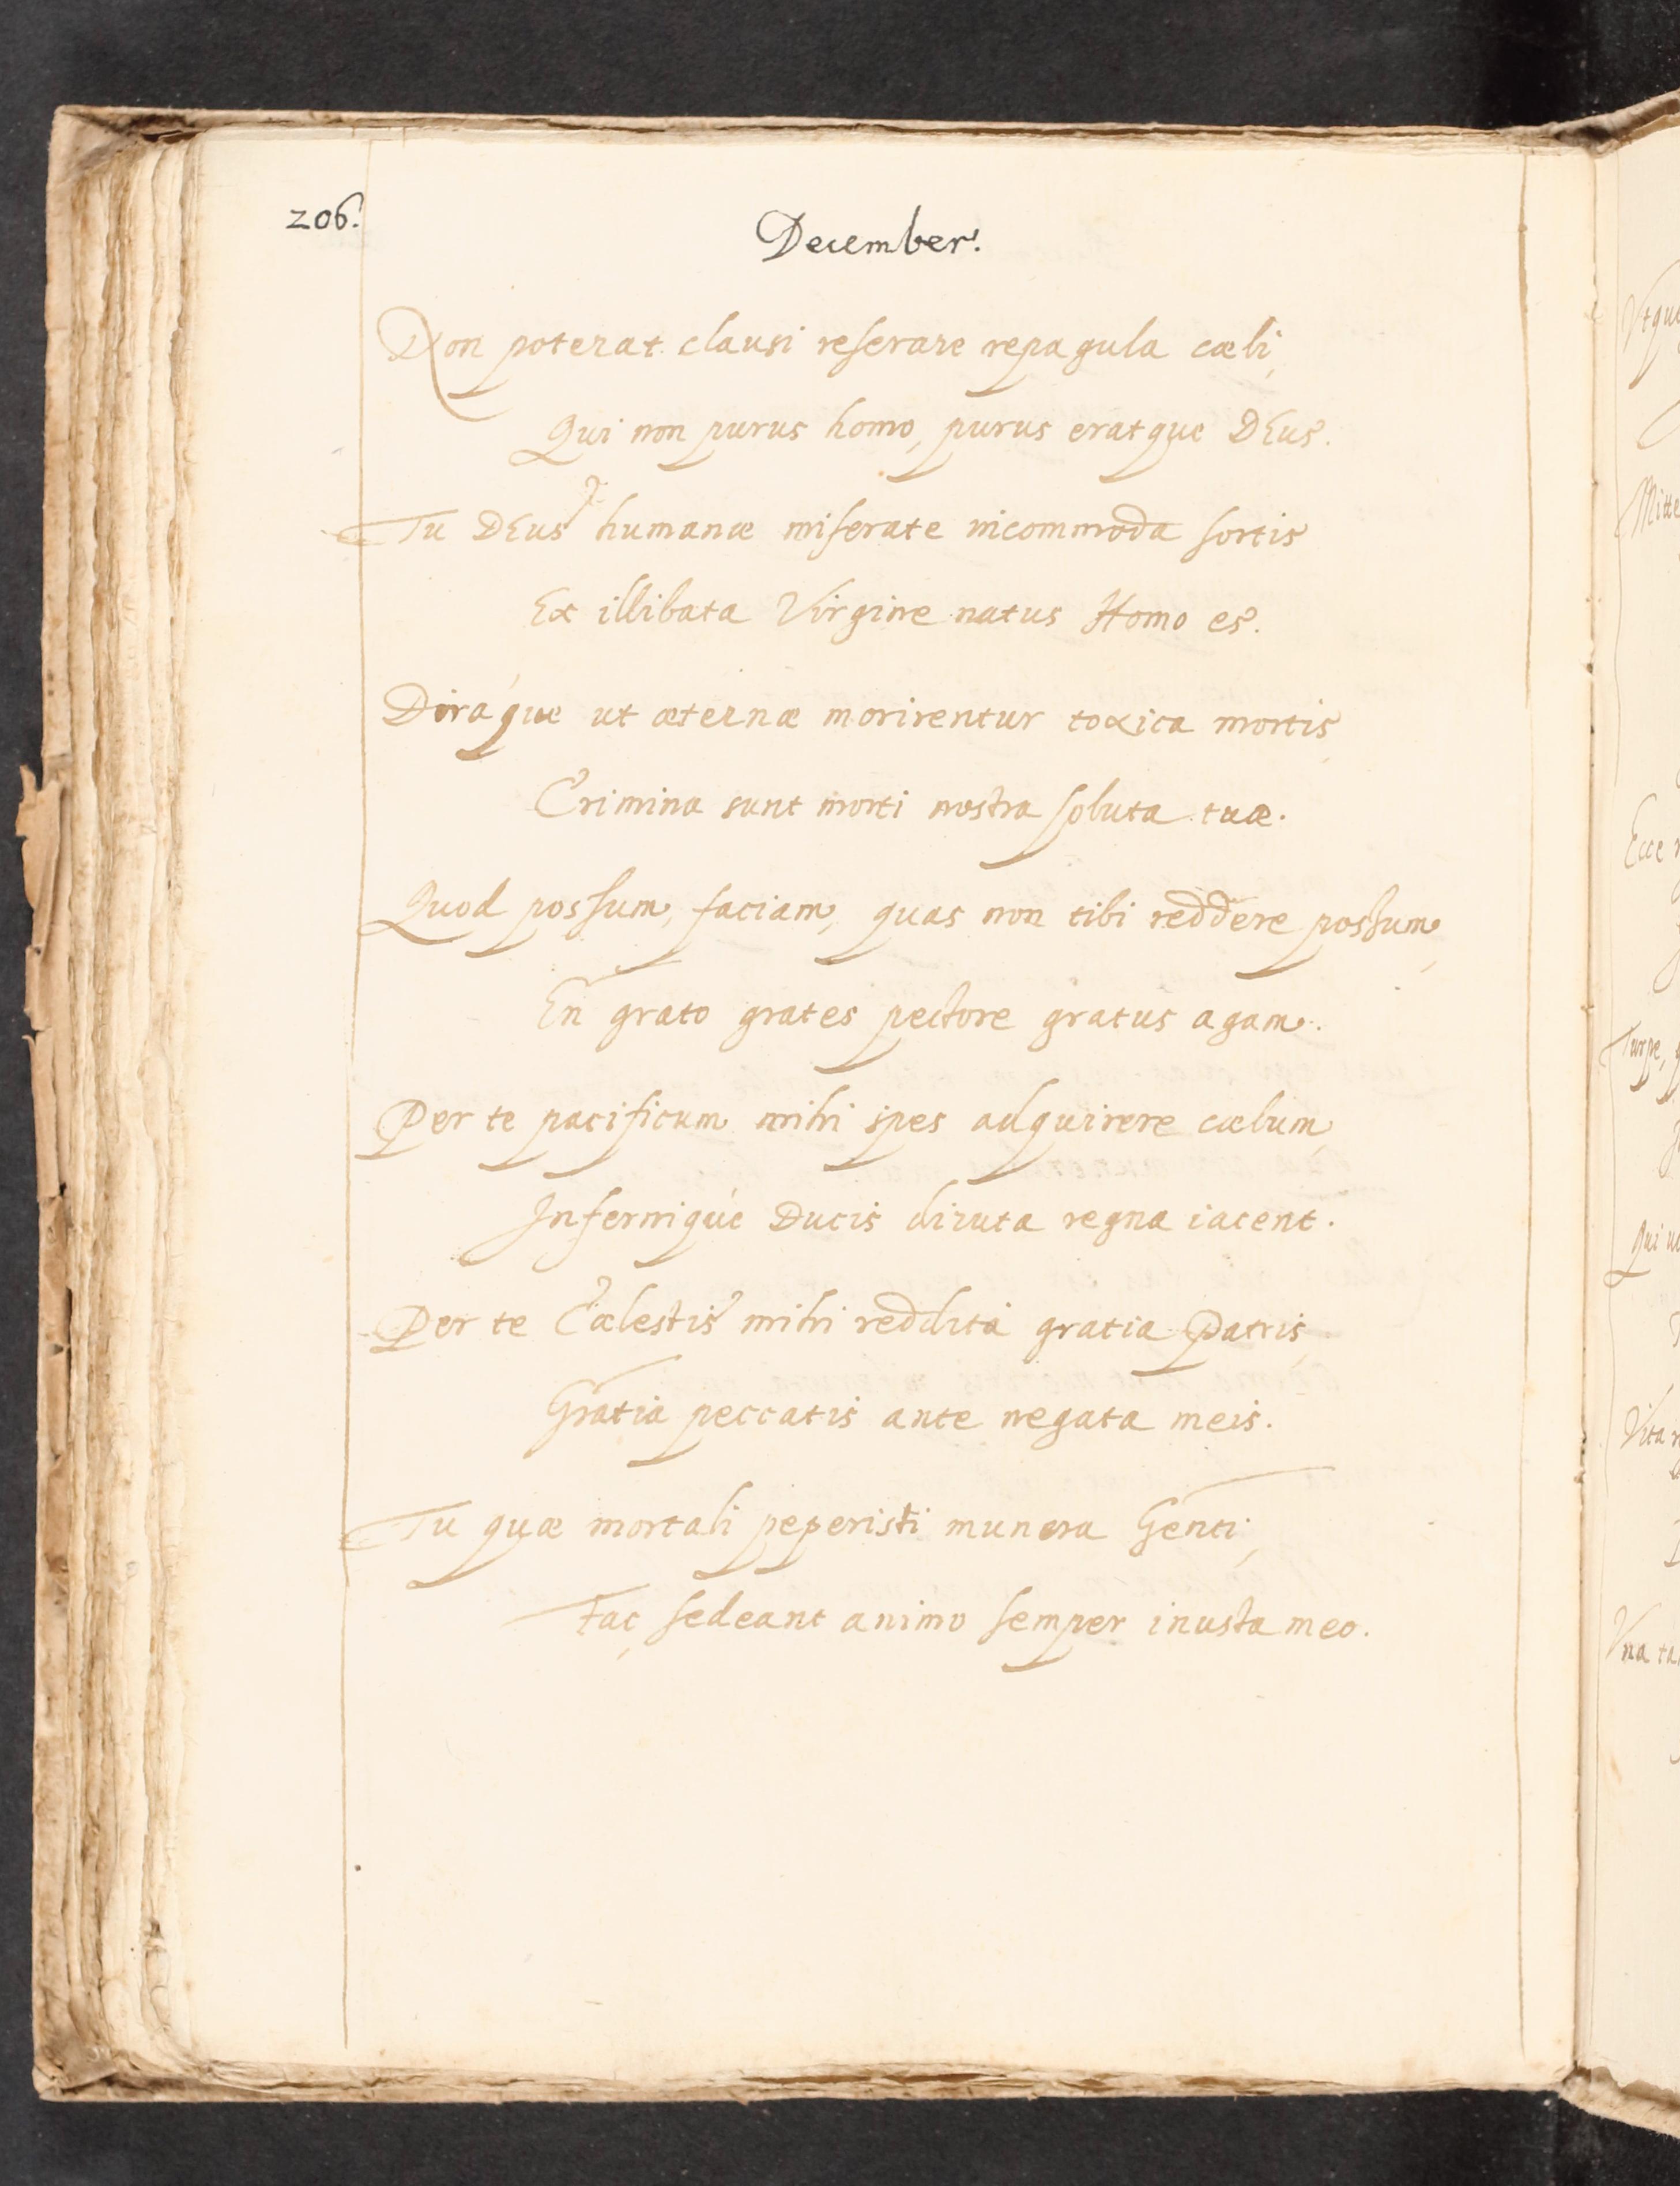 206.
December.
Non poterat clausi reserare repagula cæli,
Qui non purus homo, purus eratque DEus.
Tu DEus humanæ miserate incommoda sortis
Ex illibata Virgine natus Homo es.
Diráque ut æternæ morirentur toxica mortis,
Crimina sunt morti nostra soluta tuæ.
Quod possum, faciam, quas non tibi reddere possum,
En grato grates pectore gratus agam.
Per te pacificum mihi spes adquirere cælum,
Infernique Ducis diruta regna iacent.
Per te Cælestis mihi reddita gratia Patris,
Gratia peccatis ante negata meis.
Tu quæ mortali peperisti munera Genti,
Fac, sedeant animo semper inusta meo.
Mitte
Turpe,